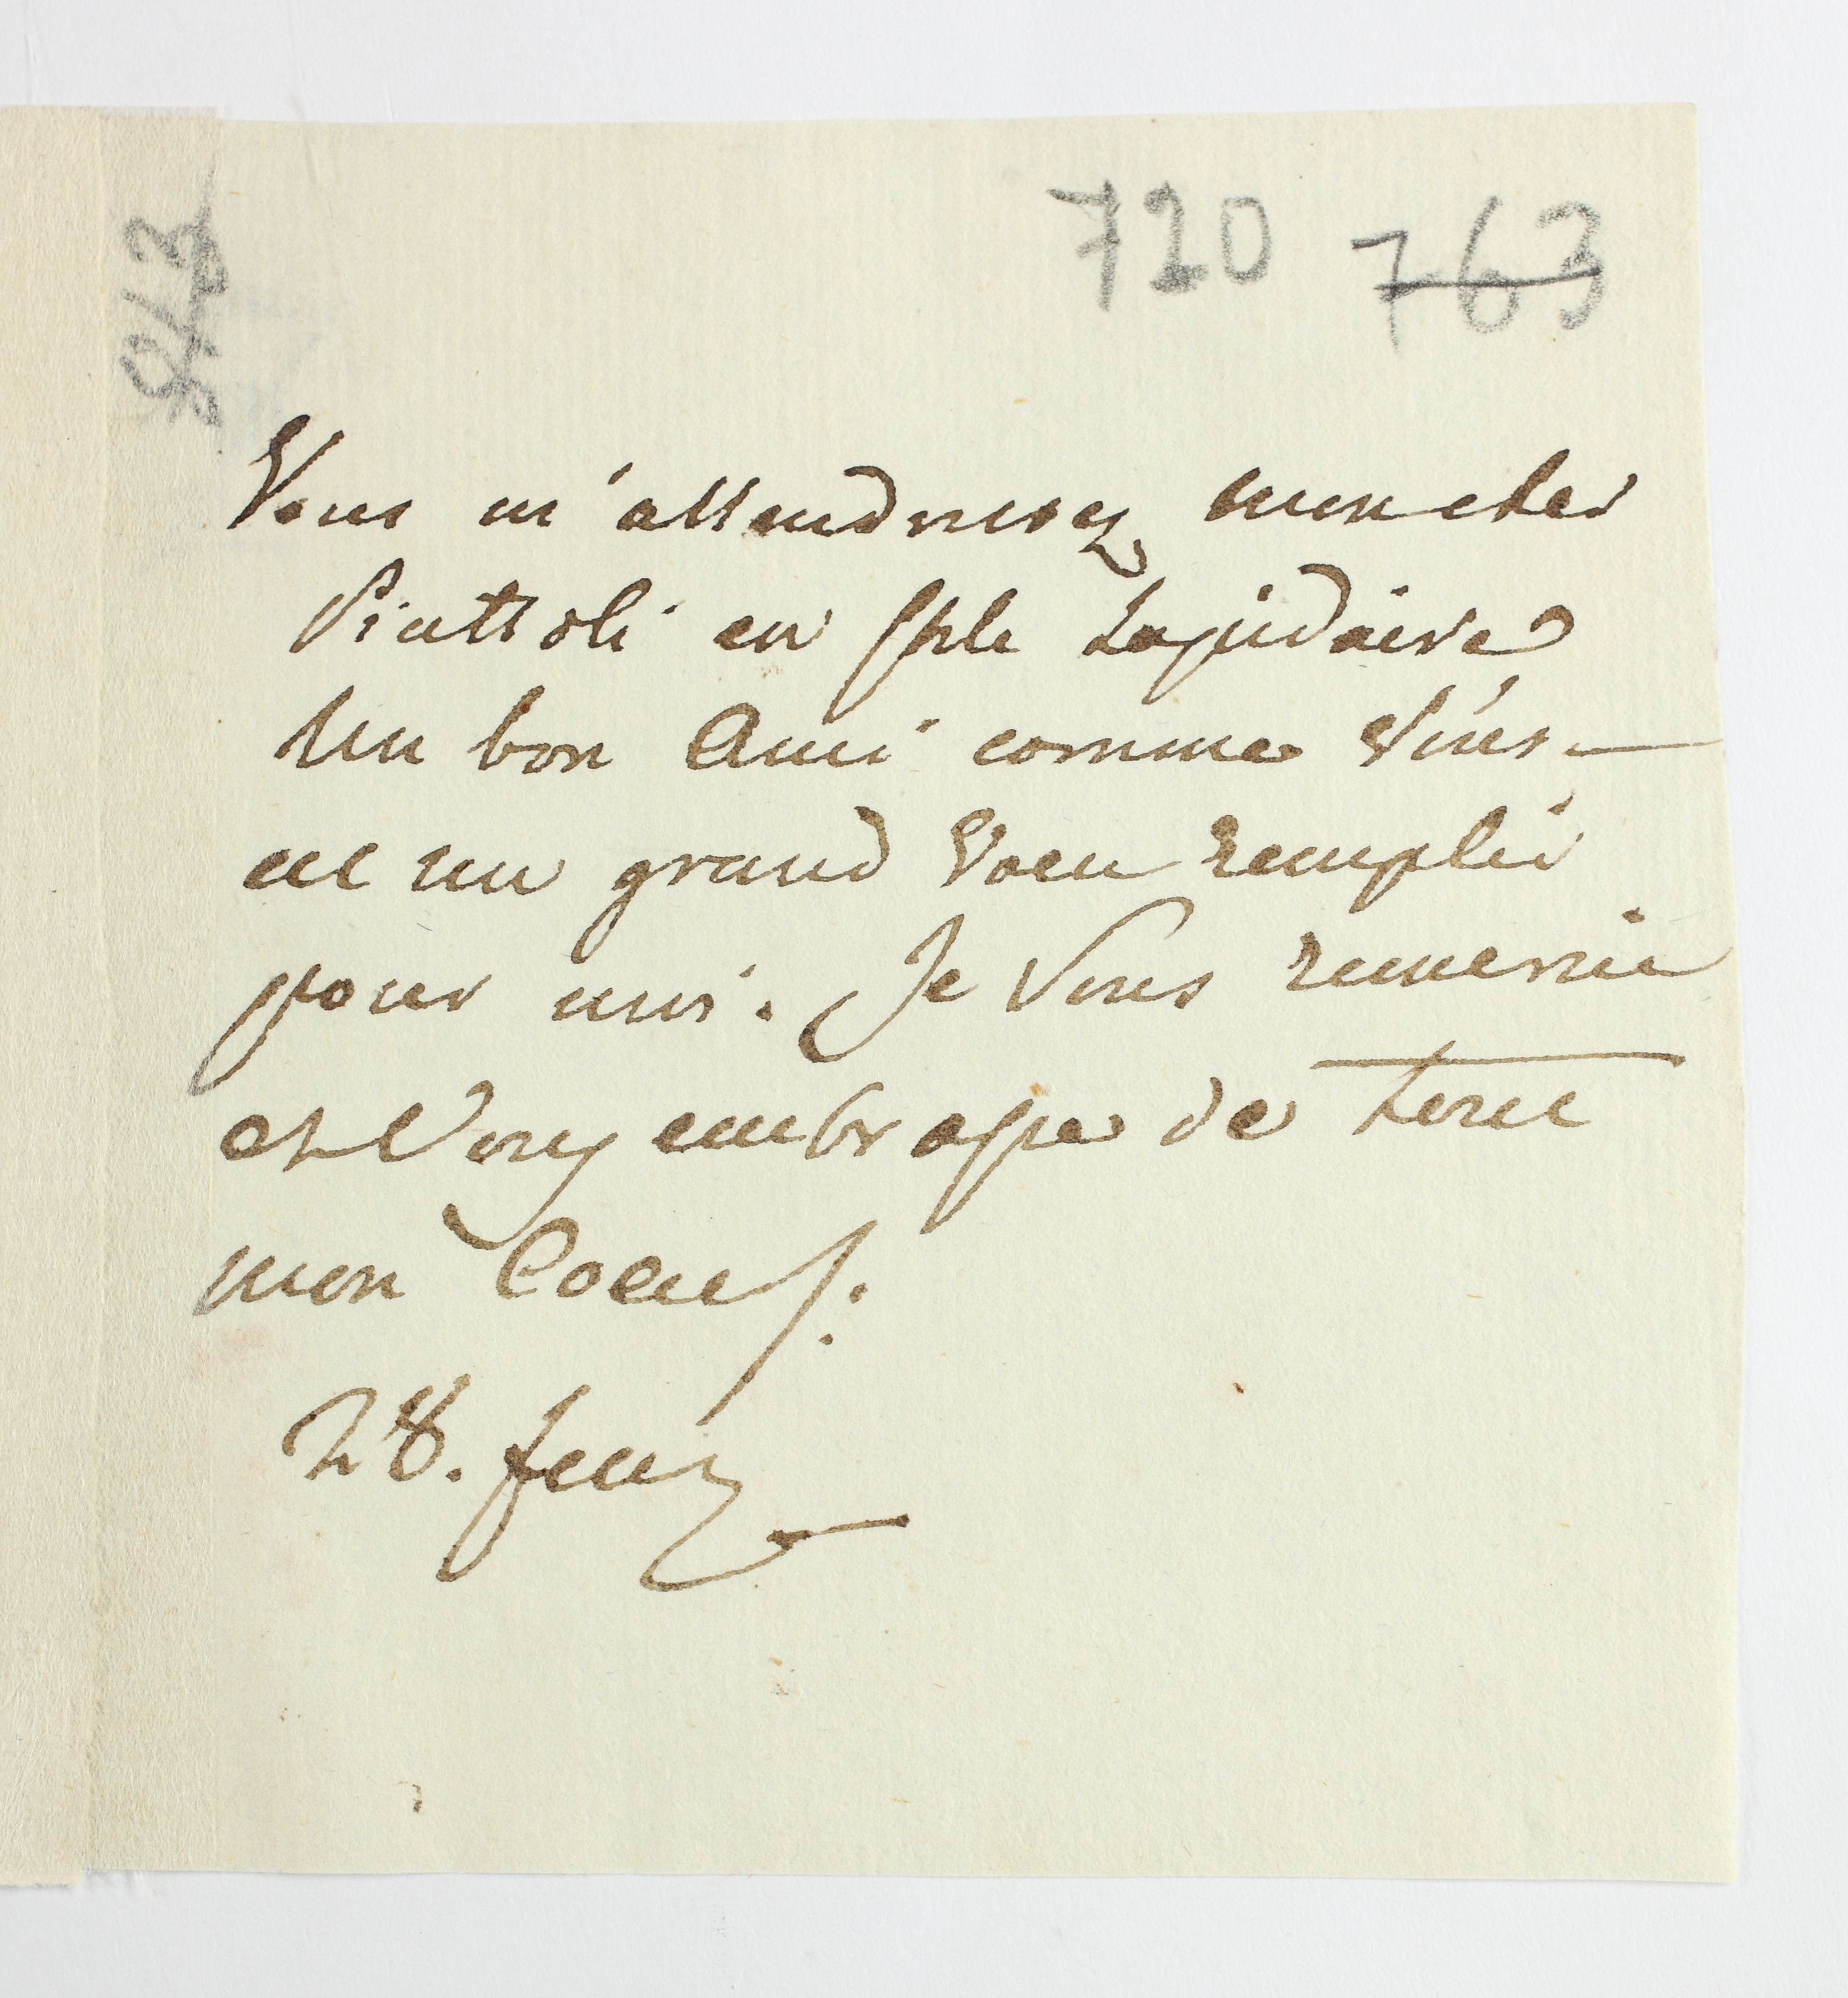 720 763
Vous m'attendrissez mon cher
Piattoli en style Lapidaire
Un bon Ami comme Vous
est un grand Voeu rempli
pour moi. Je Vous remercie
et Vous embrasse de tout
mon Coeur.
28.